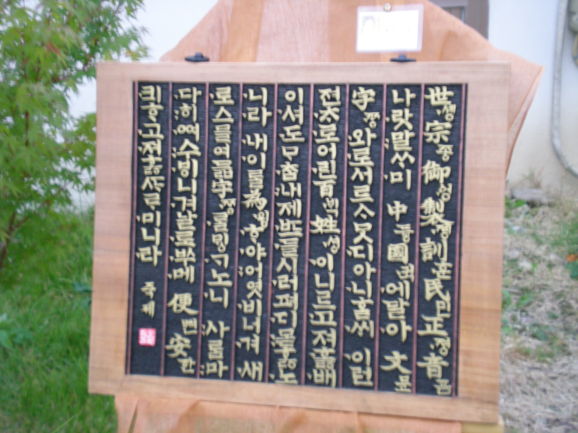 世솅宗종御엉製졩訓훈民민正졍音ᅙᅳᆷ
나랏말ᄊᆞ미 中듕國귁에달아 文문
字ᄍᆞᆼ와로서르ᄉᆞᄆᆞᆺ디아니ᄒᆞᆯᄊᆡ 이런
젼ᄎᆞ로어린百ᄇᆡᆨ姓셩이니르고져호ᇙ배
이셔도ᄆᆞᄎᆞᆷ내제ᄠᅳ들시러펴디몯ᄒᆞᇙ노
니라 내이ᄅᆞᆯ爲윙ᄒᆞ야어엿비너겨 새
로스믈여듧字ᄍᆞᆼᄅᆞᆯᄆᆡᇰᄀᆞ노니 사ᄅᆞᆷ마
다ᄒᆡᅇᅧ수ᄫᅵ니겨날로ᄡᅮ메 便뼌安ᅙᅡᆫ
킈ᄒᆞ고져ᄒᆞᇙᄯᆞᄅᆞ미니라